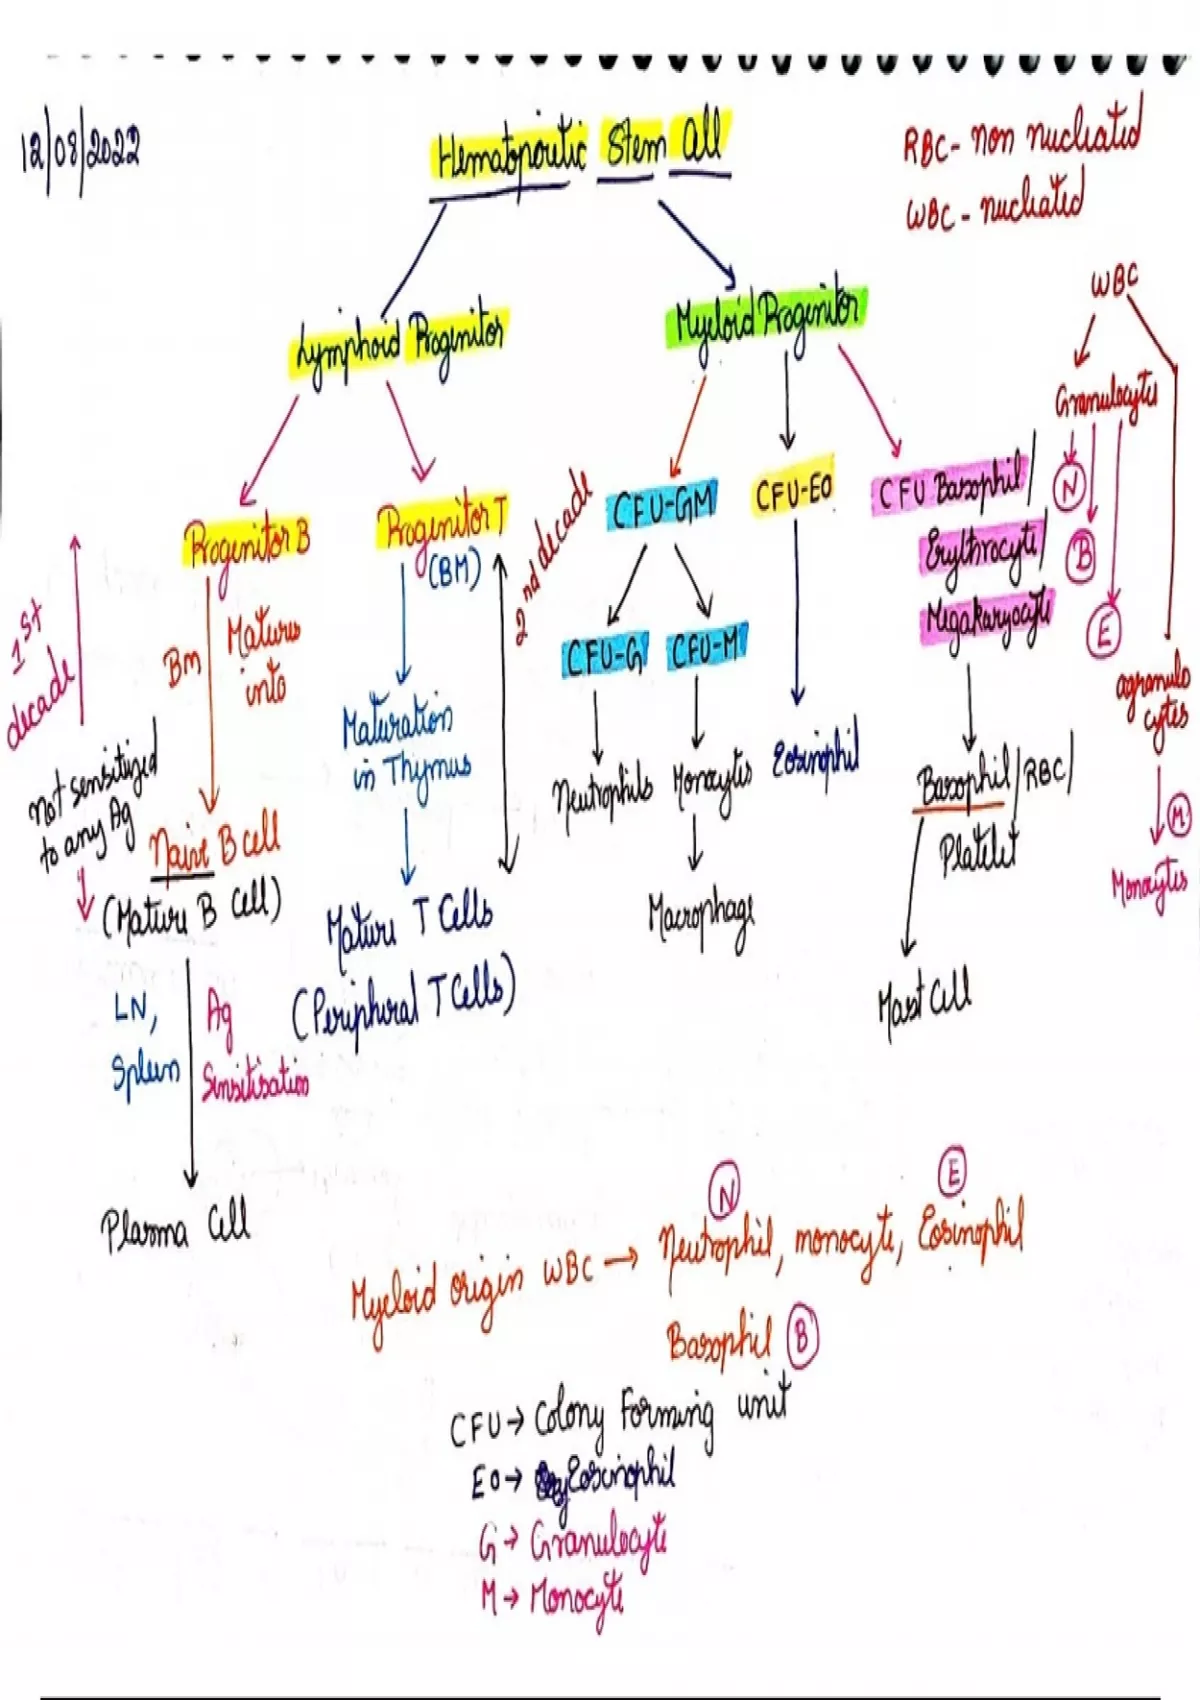 12/08/2022
Hematopoietic Stem Cell
RBC - non nucleated
WBC - nucleated
WBC
Granulocytes
N
B
E
agranulo
cytes
M
Monocytes
Lymphoid Progenitor
Myeloid Progenitor
Progenitor B
Progenitor T
(BM)
2nd decade
CFU-GM
CFU-EO
CFU Basophil/
Erythrocyte/
Megakaryocyte
1st
decade
BM
Matures
into
Maturation
in Thymus
CFU-G
CFU-M
Neutrophils
Monocytes
Eosinophil
Basophil/RBC/
Platelet
not sensitized
to any Ag
Naive B cell
(Mature B Cell)
Mature T Cells
(Peripheral T Cells)
Macrophage
Mast Cell
LN,
Spleen
Ag
Sensitisation
Plasma Cell
N
E
Myeloid origin WBC → Neutrophil, monocyte, Eosinophil
Basophil B
CFU → Colony Forming unit
EO → Eosinophil
G → Granulocyte
M → Monocyte